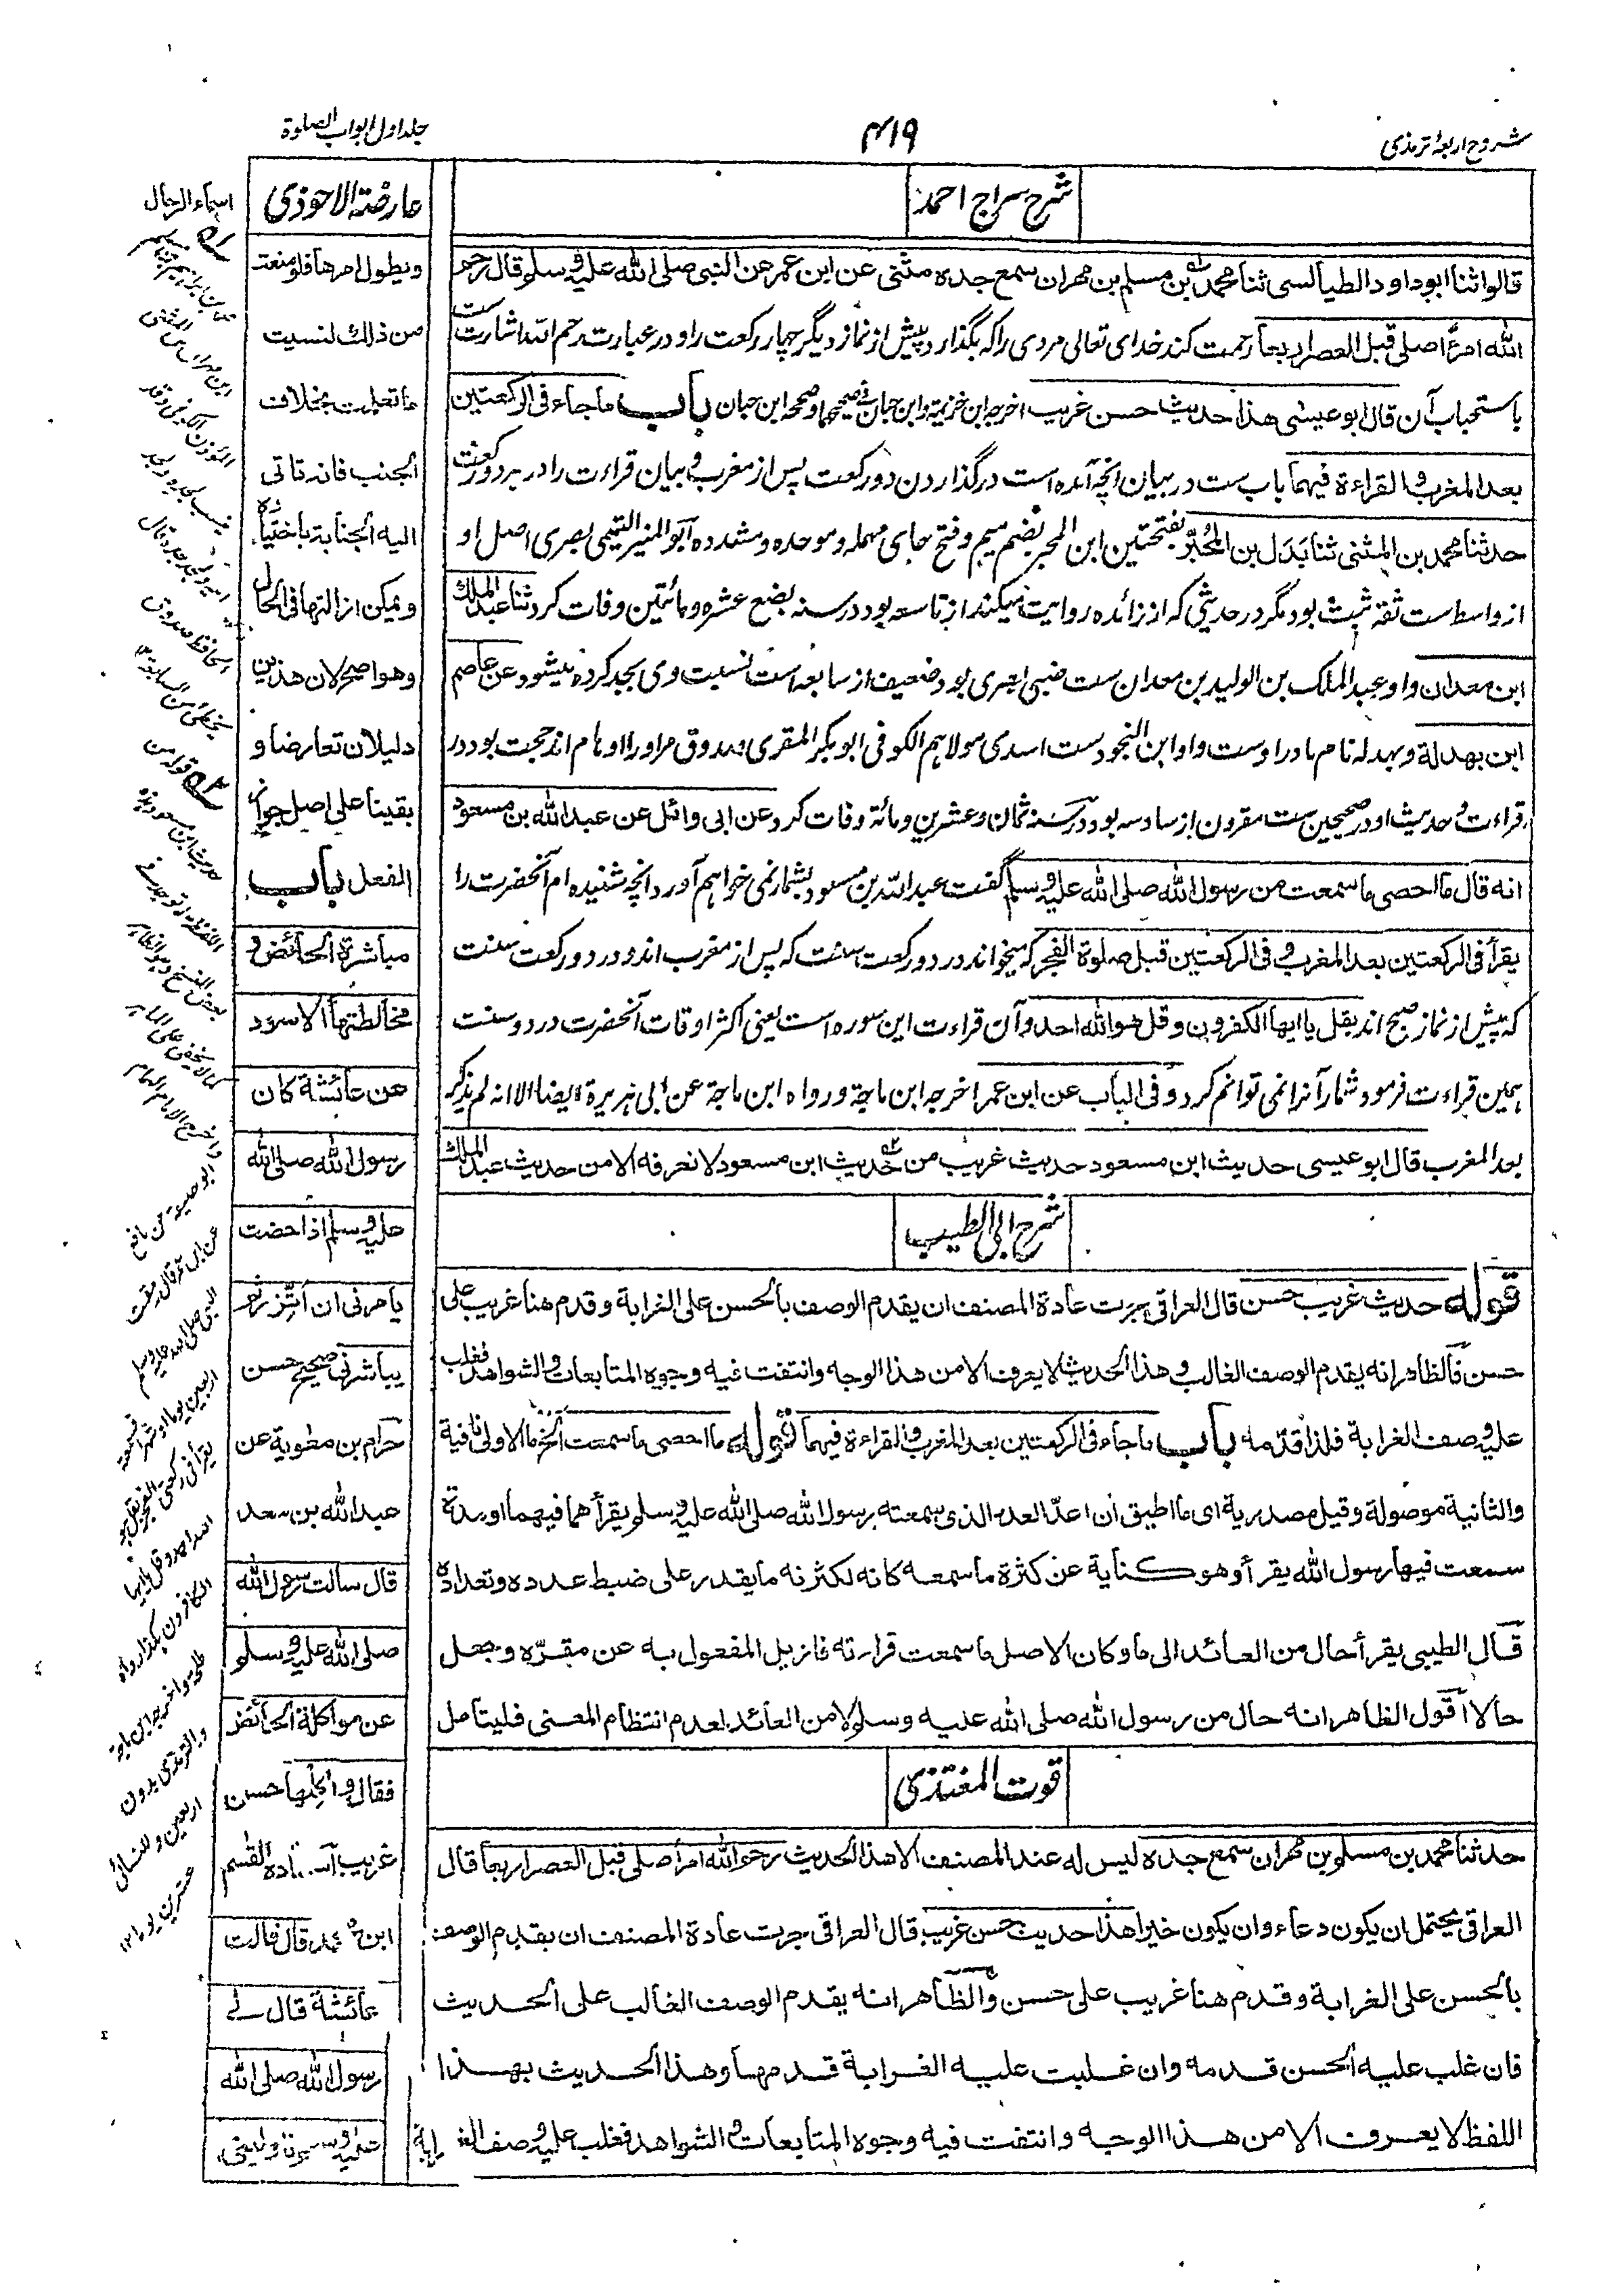 شروح اربعهٔ ترمذی
۴۱۹
جلد اول ابواب الصلوة
شرح سراج احمد
قالوا ثنا ابوداود الطيالسى ثنا محمد بن مسلم بن مهران سمع جده مثنى عن ابن عمر عن النبى صلى الله عليه وسلم قال رحم
الله امرءً اصلى قبل العصر اربعا رحمت کند خدای تعالی مردی راکه بگذارد پیش از نماز دیگر چهار رکعت را و در عبارت رحم الله اشارت ست
باستحباب آن قال ابوعيسى هذا حديث حسن غريب اخرجه ابن خزيمة وابن حبان فى صحيحهما وصححه ابن حبان باب ماجاء فى الركعتين
بعد المغرب والقراءة فيهما باب ست در بیان انچه آمده است در گذاردن دو رکعت پس از مغرب و بیان قراءت را در هر دو رکعت
حدثنا محمد بن المثنى ثنا بدل بن المُحبّر بفتحتین ابن المحبر بضم میم و فتح حای مهمله و موحده و مشدده ابو المنیر التیمی بصری اصل او
از واسط ست ثقه ثبت بود مگر در حدیثی که از زائده روایت میکند از تاسعه بود در سنه بضع عشره و مائتین وفات کرد ثنا عبد الملك
ابن معدان و او عبد الملک بن الولید بن معدان ست ضبی بصری بود ضعیف از سابعه است نسبت وی بجد کرده میشود عن عاصم
ابن بهدلة و بهدله نام مادر اوست و او ابن النجود ست اسدی مولاهم الکوفی ابوبکر المقری صدوق مر او را اوهام اند حجت بود در
قراءت و حدیث او در صحیحین ست مقرون از سادسه بود در سنه ثمان و عشرین و مائة وفات کرد عن ابى وائل عن عبد الله بن مسعود
انه قال ما احصى ما سمعت من رسول الله صلى الله عليه وسلم گفت عبد الله بن مسعود بشمار نمی خواهم آورد انچه شنیده ام آنحضرت را
يقرأ فى الركعتين بعد المغرب وفى الركعتين قبل صلوة الفجر که میخواند در دو رکعت سنت که پس از مغرب اند و در دو رکعت سنت
که پیش از نماز صبح اند بقل يا ايها الكفرون وقل هو الله احد و آن قراءت این سوره است یعنی اکثر اوقات آنحضرت در دو سنت
همین قراءت فرمود شمار آنرا نمی توانم کرد وفى الباب عن ابن عمر اخرجه ابن ماجة ورواه ابن ماجة عن ابى هريرة ايضا الا انه لم يذكر
بعد المغرب قال ابوعيسى حديث ابن مسعود حديث غريب من حديث ابن مسعود لا نعرفه الا من حديث عبد الملك
شرح ابى الطيب
قوله حديث غريب حسن قال العراقى جرت عادة المصنف ان يقدم الوصف بالحسن على الغرابة وقدم هنا غريب على
حسن فالظاهر انه يقدم الوصف الغالب وهذا الحديث لا يعرف الا من هذا الوجه وانتفت فيه وجوه المتابعات والشواهد فغلب
عليه وصف الغرابة فلذا قدّمه باب ماجاء فى الركعتين بعد المغرب والقراءة فيهما قوله ما احصى ما سمعت الخ ما الاولى نافية
والثانية موصولة وقيل مصدرية اى ما اطيق ان اعدّ العدد الذى سمعته رسول الله صلى الله عليه وسلم يقرأهما فيهما او مدة
سمعت فيها رسول الله يقرأ وهو كناية عن كثرة ما سمعه كانه لكثرته ما يقدر على ضبط عدده وتعداده
قال الطيبى يقرأ حال من العائد الى ما وكان الاصل ما سمعت قراءته فازيل المفعول به عن مقرّه وجعل
حالا اقول الظاهر انه حال من رسول الله صلى الله عليه وسلم لا من العائد لعدم انتظام المعنى فليتأمل
قوت المغتذى
حدثنا محمد بن مسلم بن مهران سمع جده ليس له عند المصنف الا هذا الحديث رحم الله امرأ صلى قبل العصر اربعا قال
العراقى يحتمل ان يكون دعاء وان يكون خبرا هذا حديث حسن غريب قال العراقى جرت عادة المصنف ان يقدم الوصف
بالحسن على الغرابة وقدم هنا غريب على حسن والظاهر انه يقدم الوصف الغالب على الحديث
فان غلب عليه الحسن قدمه وان غلبت عليه الغرابة قدمها وهذا الحديث بهذا
اللفظ لا يعرف الا من هذا الوجه وانتفت فيه وجوه المتابعات والشواهد فغلب عليه وصف الغرابة
عارضة الاحوذى
ويطول امرها فلو منعت
من ذلك لنسيت
ما تعلمت بخلاف
الجنب فانه تاتى
اليه الجنابة باختياره
ويمكن ازالتها فى الحال
وهو اصح لان هذين
دليلان تعارضا و
بقينا على اصل جواز
الفعل باب
مباشرة الحائض و
مخالطتها الاسود
عن عائشة كان
رسول الله صلى الله
عليه وسلم اذا حضت
يامرنى ان أتّزر ثم
يباشرنى صحيح حسن
حرام بن معٰوية عن
عبد الله بن سعد
قال سالت رسول الله
صلى الله عليه وسلم
عن مواكلة الحائض
فقال واكِلْها حسن
غريب القسم
ابن محمد قال قالت
عائشة قال لى
رسول الله صلى الله
عليه وسلم ناولينى
اسماء الرجال
محمد بن ابراهيم بن مسلم
ابن مهران بن المثنى
المؤذن الكوفى وقد
ينسب لجده
الحافظ صدوق
يخطئ من السابعة ۱۲
قوله من
حديث ابن مسعود
كما لا يخفى على الماهر
واخرج الامام الهمام
ابو حنيفة عن نافع
عن ابن عمر قال رمقت
النبى صلى الله عليه وسلم
اربعين يوما او شهرا فسمعته
يقرأ فى ركعتى الفجر بقل هو
الله احد وقل يا ايها
الكافرون هكذا رواه
طلحة واخرجه ابن ماجة
والترمذى بدون
اربعين وللنسائى
عشرين يوما ۱۲